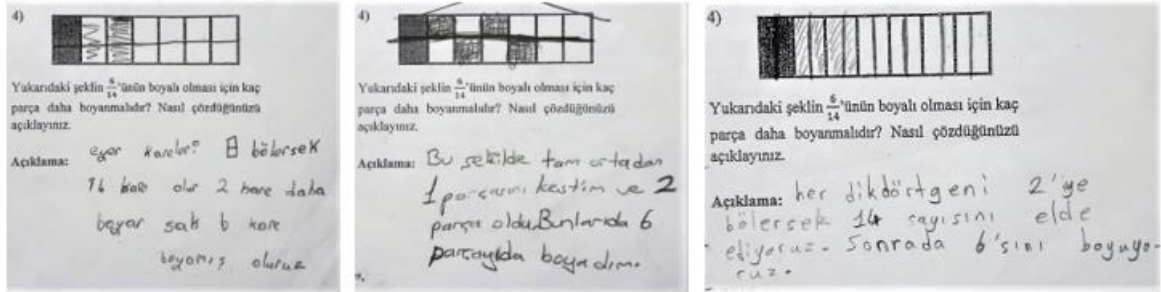 4)
Yukarıdaki şeklin 6/14'ünün boyalı olması için kaç
parça daha boyanmalıdır? Nasıl çözdüğünüzü
açıklayınız.
Açıklama: eğer kareler? 8 bölersek
14 kare olur 2 kare daha
boyar sak 6 kare
boyamış oluruz
4)
Yukarıdaki şeklin 6/14'ünün boyalı olması için kaç
parça daha boyanmalıdır? Nasıl çözdüğünüzü
açıklayınız.
Açıklama: Bu şekilde tam ortadan
1 parçasını kestim ve 2
parça oldu. Bunlarıda 6
parçayıda boyadım.
4)
Yukarıdaki şeklin 6/14'ünün boyalı olması için kaç
parça daha boyanmalıdır? Nasıl çözdüğünüzü
açıklayınız.
Açıklama: her dikdörtgeni 2'ye
bölersek 14 sayısını elde
ediyoruz. Sonrada 6'sını boyuyo-
ruz.